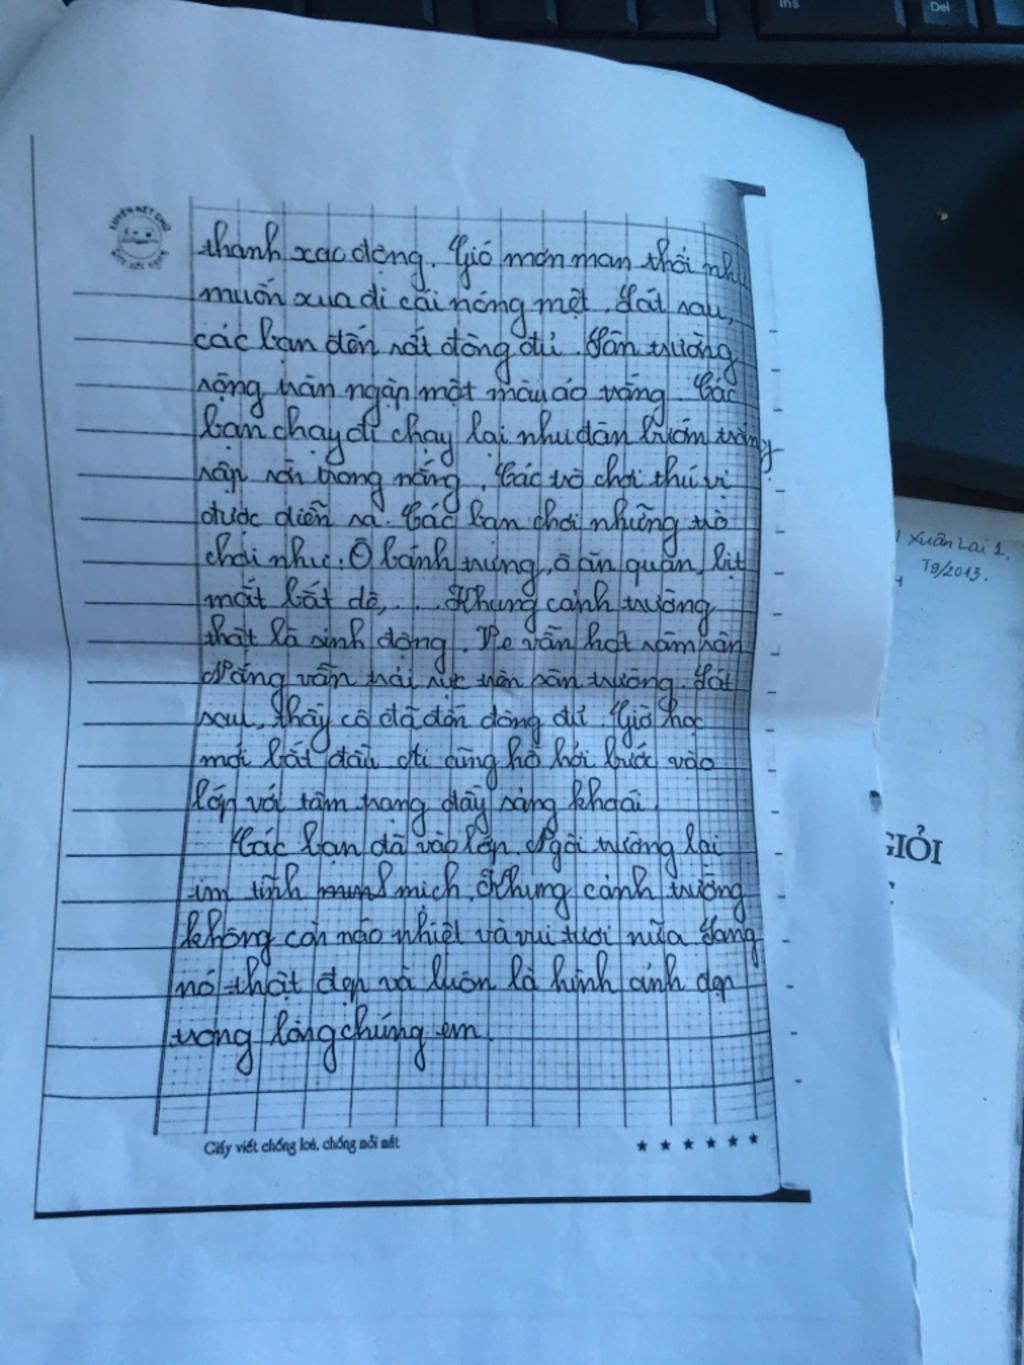 Ins
Del
LUYỆN NÉT CHỮ
thanh xao động. Gió mơn man thổi như
muốn xua đi cái nóng mệt. Lát sau,
các bạn đến rất đông đủ. Sân trường
rộng tràn ngập một màu áo trắng. Các
bạn chạy đi chạy lại như đàn bướm trắng
rập rờn trong nắng. Các trò chơi thú vị
được diễn ra. Các bạn chơi những trò
chơi như: Ô bánh trưng, ô ăn quan, bịt
mắt bắt dê,... Khung cảnh trường
thật là sinh động. Ve vẫn hát râm ran
Nắng vẫn trải rực trên sân trường. Lát
sau, thầy cô đã đến đông đủ. Giờ học
mới bắt đầu. Ai cũng hồ hởi bước vào
lớp với tâm trạng đầy sảng khoái.
Các bạn đã vào lớp. Ngôi trường lại
im tĩnh mịch. Khung cảnh trường
không còn náo nhiệt và vui tươi nữa. Song
nó thật đẹp và luôn là hình ảnh đẹp
trong lòng chúng em.
Giấy viết chống loá, chống mỏi mắt
Xuân Lai 1.
T9/2013.
GIỎI